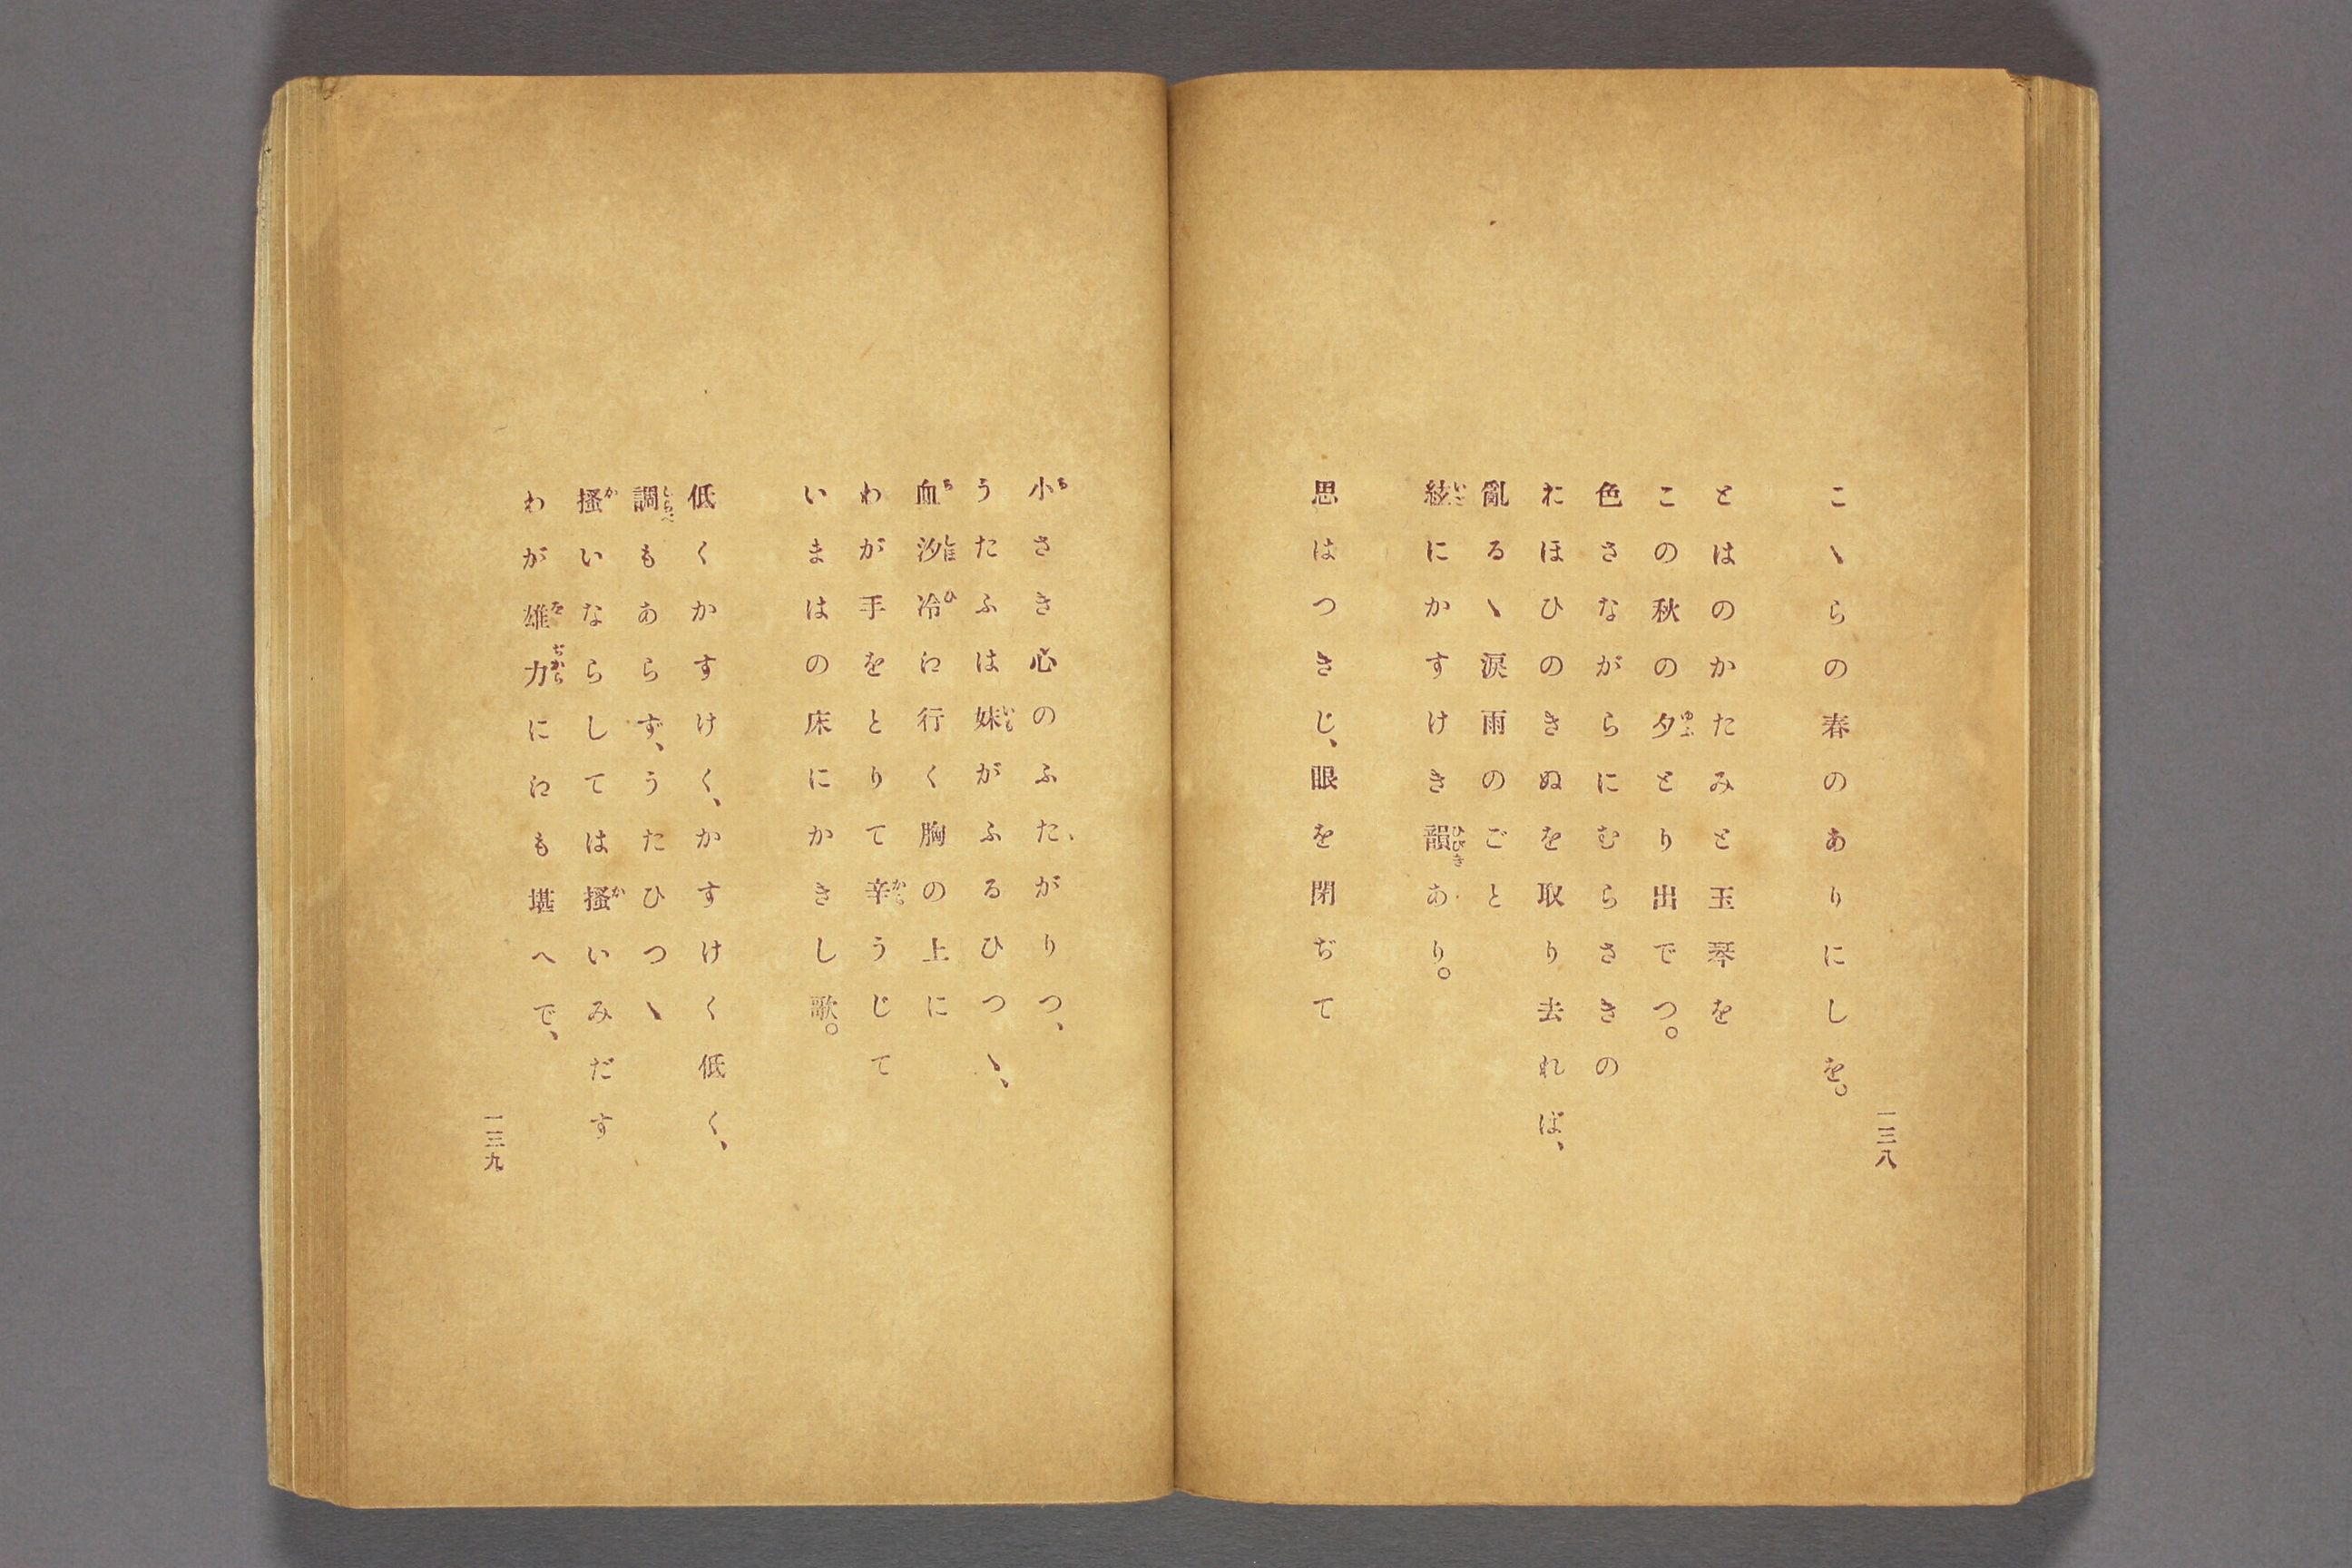 一三八
こゝらの春のありにしを。
とはのかたみと玉琴を
この秋の夕とり出でつ。
色さながらにむらさきの
にほひのきぬを取り去れば、
亂るゝ涙雨のごと
絃にかすけき韻あり。
思はつきじ、眼を閉ぢて
小さき心のふたがりつ、
うたふは妹がふるひつゝ、
血汐冷に行く胸の上に
わが手をとりて辛うじて
いまはの床にかきし歌。
低くかすけく、かすけく低く、
調もあらず、うたひつゝ
搔いならしては搔いみだす
わが雄力ににも堪へで、
一三九